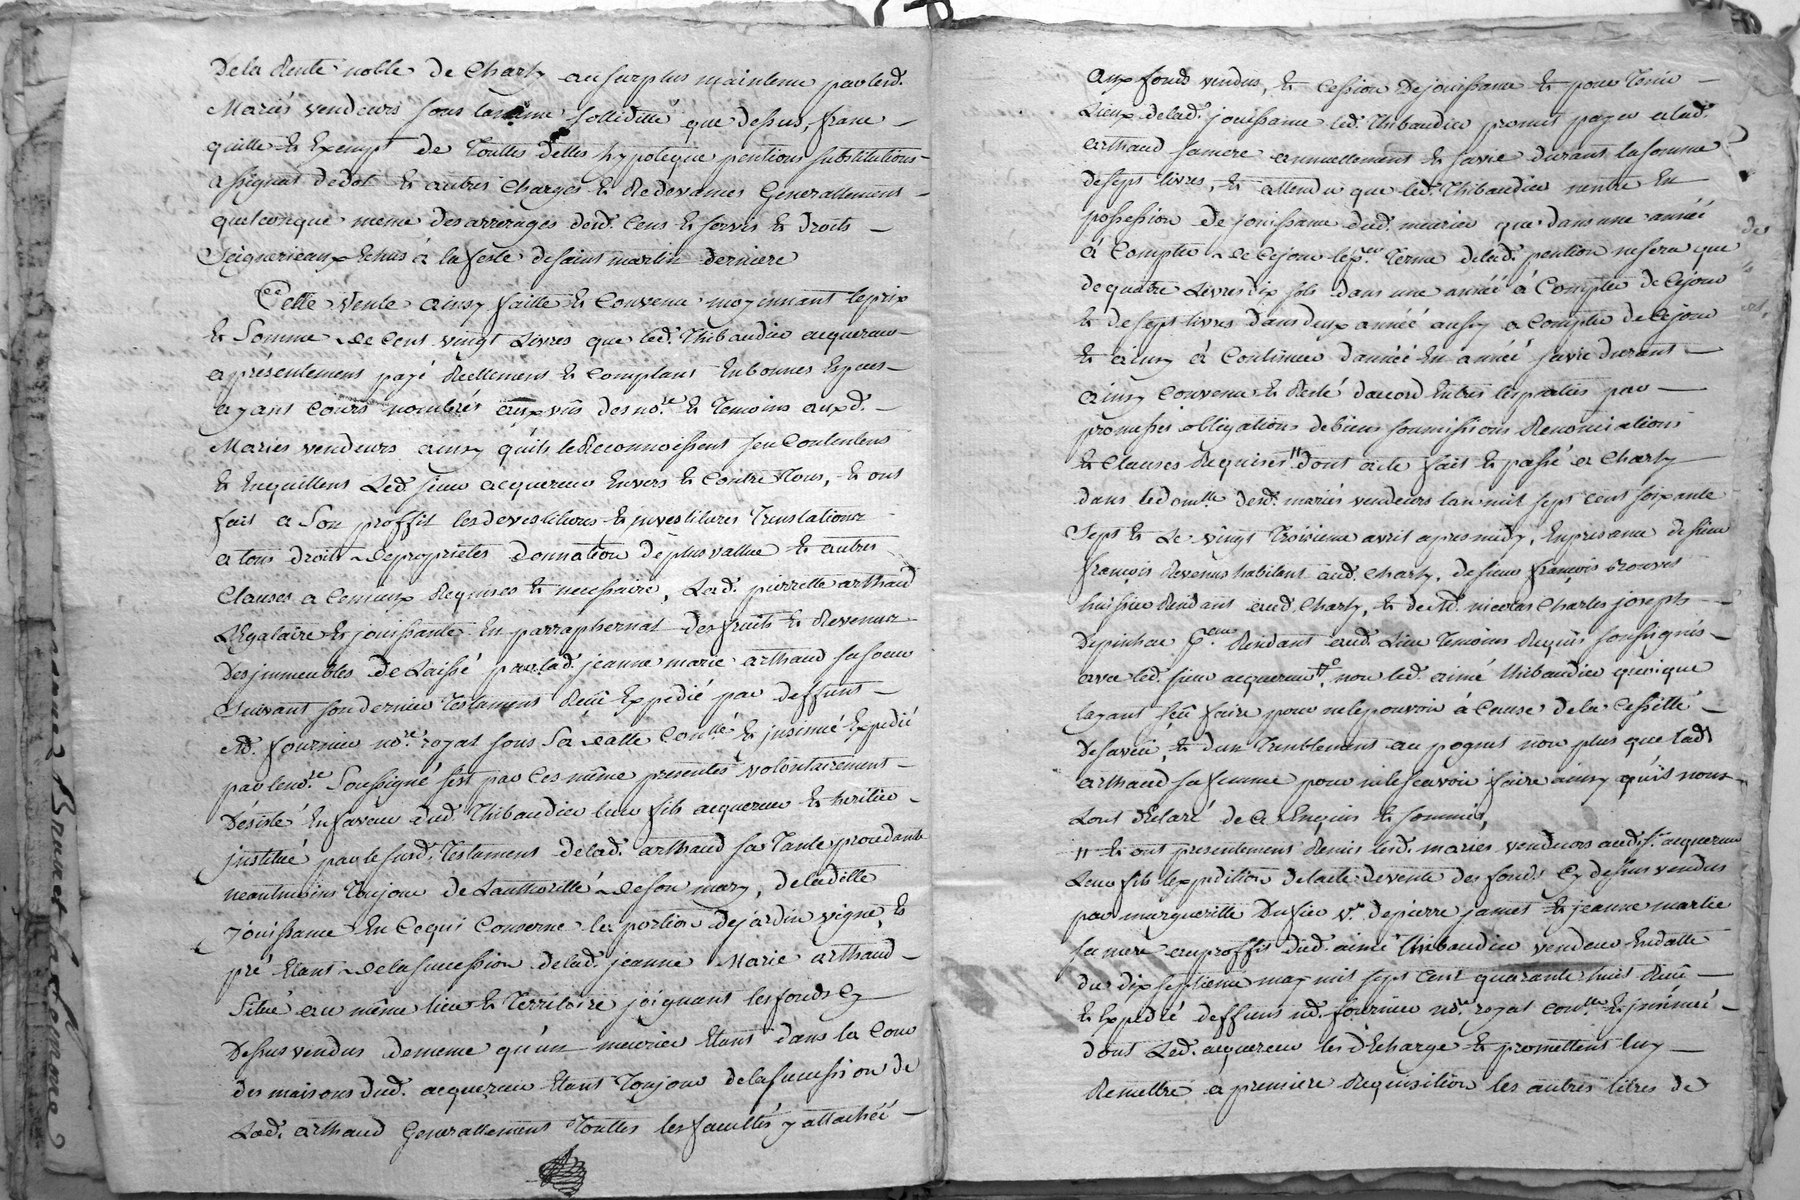 De la Rente noble de Charly au surplus maintenu par lesd.
Mariés vendeurs sous la même solliditté que dessus, franc
quitte et Exempt de Touttes dettes hypoteque pentions substitutions
assignat de dot et autres charges et Redevances Generallement
quelconque meme des arrerages desd. Cens et servis et droits
Seignerieaux Echus à la feste de saint martin derniere
Cette Vente ainsy faitte et Convenu moyennant le prix
et Somme de Cent vingt Livres que led. Thibaudier acquereur
a présentement payé Reellement et Comptant En bonnes Espces
ayant cours nombrés aux vûs des no.re et Temoins auxd.
Mariés vendeurs ainsy qu'ils le Reconnoissent s'en Contentent
et En quittent Led. sieur acquereur Envers et Contre Tous, et ont
fait a Son proffit les devestitures et investitures Translation
a tous droits de proprietés donnation de plus vallue et autres
Clauses a Ce mieux Requises et necessaire, Lad. pierrette arthaud
Legataire et jouissante En parraphernat des fruits et Revenus
Des immeubles De Laissé par lad. jeanne marie arthaud sa soeur
Suivant son dernier Testament Reçû Expedié par deffunt
Md. fournier no.re royal sous Sa datte Conllé et insinué Expedié
par le no.re Soussigné s'est par Ces même presentes volontairement
Désisté En faveur dud. Thibaudier leur fils acquereur et heritier
justitué par le susd. Testament de lad. arthaud sa Tante procedante
neantmoins Toujour de Lauthorité de son mary, de la ditte
jouissance En Ce qui Conserne la portion de jardin vigne, et
pré Etant de la succession de lad. jeanne Marie arthaud
Situé au même lieu et Territoire joignant les fonds Cy
Dessus vendus de meme qu'un meurier Etant dans la Cour
des maisons dud. acquereur Etant Toujour de la succession de
Lad. arthaud Generallement Touttes les facultés y attachéé
aux fonds vendus, et cession de jouissance et pour Tenir
Lieux de lad. jouissance led. Thibaudier promet payer a lad.
arthaud sa mere annuellement et sa vie durant la somme
de sept livres, et attendu que led. Thibaudier n'entre En
possession de jouissance dud. meurier que dans une année
à Compter de Ce jour le p.er Terme de lad. pention ne sera que
de quatre Livres dix sols dans une année à Compter de Ce jour
et de sept livres dans deux année aussy a Compter de Ce jour
et ainsy à Continuer d'année En année sa vie durant
ainsy Convenu et Resté d'accord Entres les parties par
promesses obligations de biens soumissions Renonciations
et clauses Requises " dont acte fait et passé a Charly
dans le dom.lle desd. mariés vendeurs lan mil sept cent soixante
Sept et Le vingt Troisieme avril apres midy, En presance de sieur
françois Revenus habitant aud. Charly, de sieur françois brouves
huissier Residant aud. Charly, et de Md. nicolas Charles joseph
Depinhac Residant aud. Lieu Temoins Requis soussignés
avec led. sieur acquereur, non led. aimé Thibaudier quoique
layant sçû faire pour ne le pouvoir à Cause de la Cessitté
De sa vüe, et d'un Tremblement au pognet non plus que lad.
arthaud sa femme pour ne le sçavoir faire ainsy qu'ils nous
L'ont déclaré de ce Enquis et sommés,
" et ont presentement Remis lesd. mariés vendeurs aud. s.r acquereur
Leur fils l'expedition de lacte de vente des fonds Cy dessus vendus
par margueritte Dusieu v.e de pierre james et jeanne marlie
sa mere au proffit dud. aimé Thibaudier vendeur En datte
du dix septieme may mil sept Cent quarante huit Reçû
et Expedié deffunt Md. fournier no.re royal Con.lle et insinué
dont Led. acquereur les décharge et promettent luy
Remettre a premiere Requisition les autres titres de
Brunet Lasdemoré